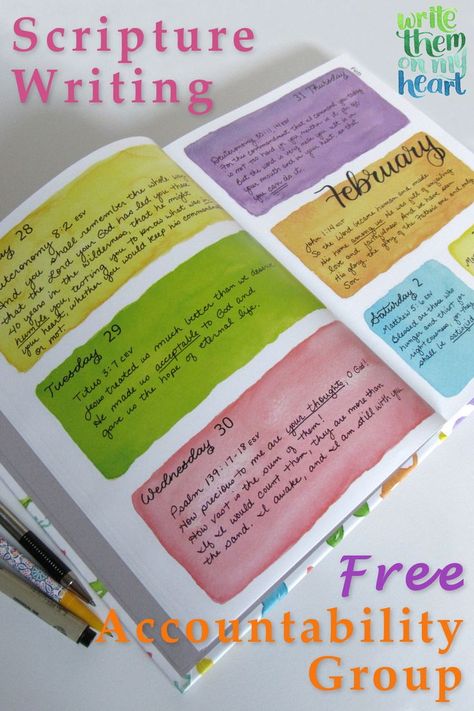 Scripture
Writing
write
them
on my
heart
y 28
uteronomy 8:2 ESV
And you shall remember the whole way
that the Lord your God has led you these
40 years in the wilderness, that he might
humble you, testing you to know what was in
your heart, whether you would keep his commandm
or not.
Tuesday 29
Titus 3:7 CEV
Jesus treated us much better than we deserve
He made us acceptable to God and
gave us the hope of eternal life.
Wednesday 30
Psalm 139:17-18 ESV
How precious to me are your thoughts, O God!
How vast is the sum of them!
If I would count them, they are more than
the sand. I awake, and I am still with you
31 Thursday
Deuteronomy 30:11,14 ESV
For this commandment that I command you today
is not too hard for you, neither is it far off.
But the word is very near you. It is in
your mouth and in your heart, so that
you can do it.
February
John 1:14 ESV
So the Word became human and made
his home among us. He was full of unfailing
love and faithfulness. And we have seen
his glory, the glory of the Father's one and only
Son
Saturday 2
Matthew 5:6 ESV
Blessed are those who
hunger and thirst for
righteousness, for they
shall be satisfie
Free
Accountability
Group